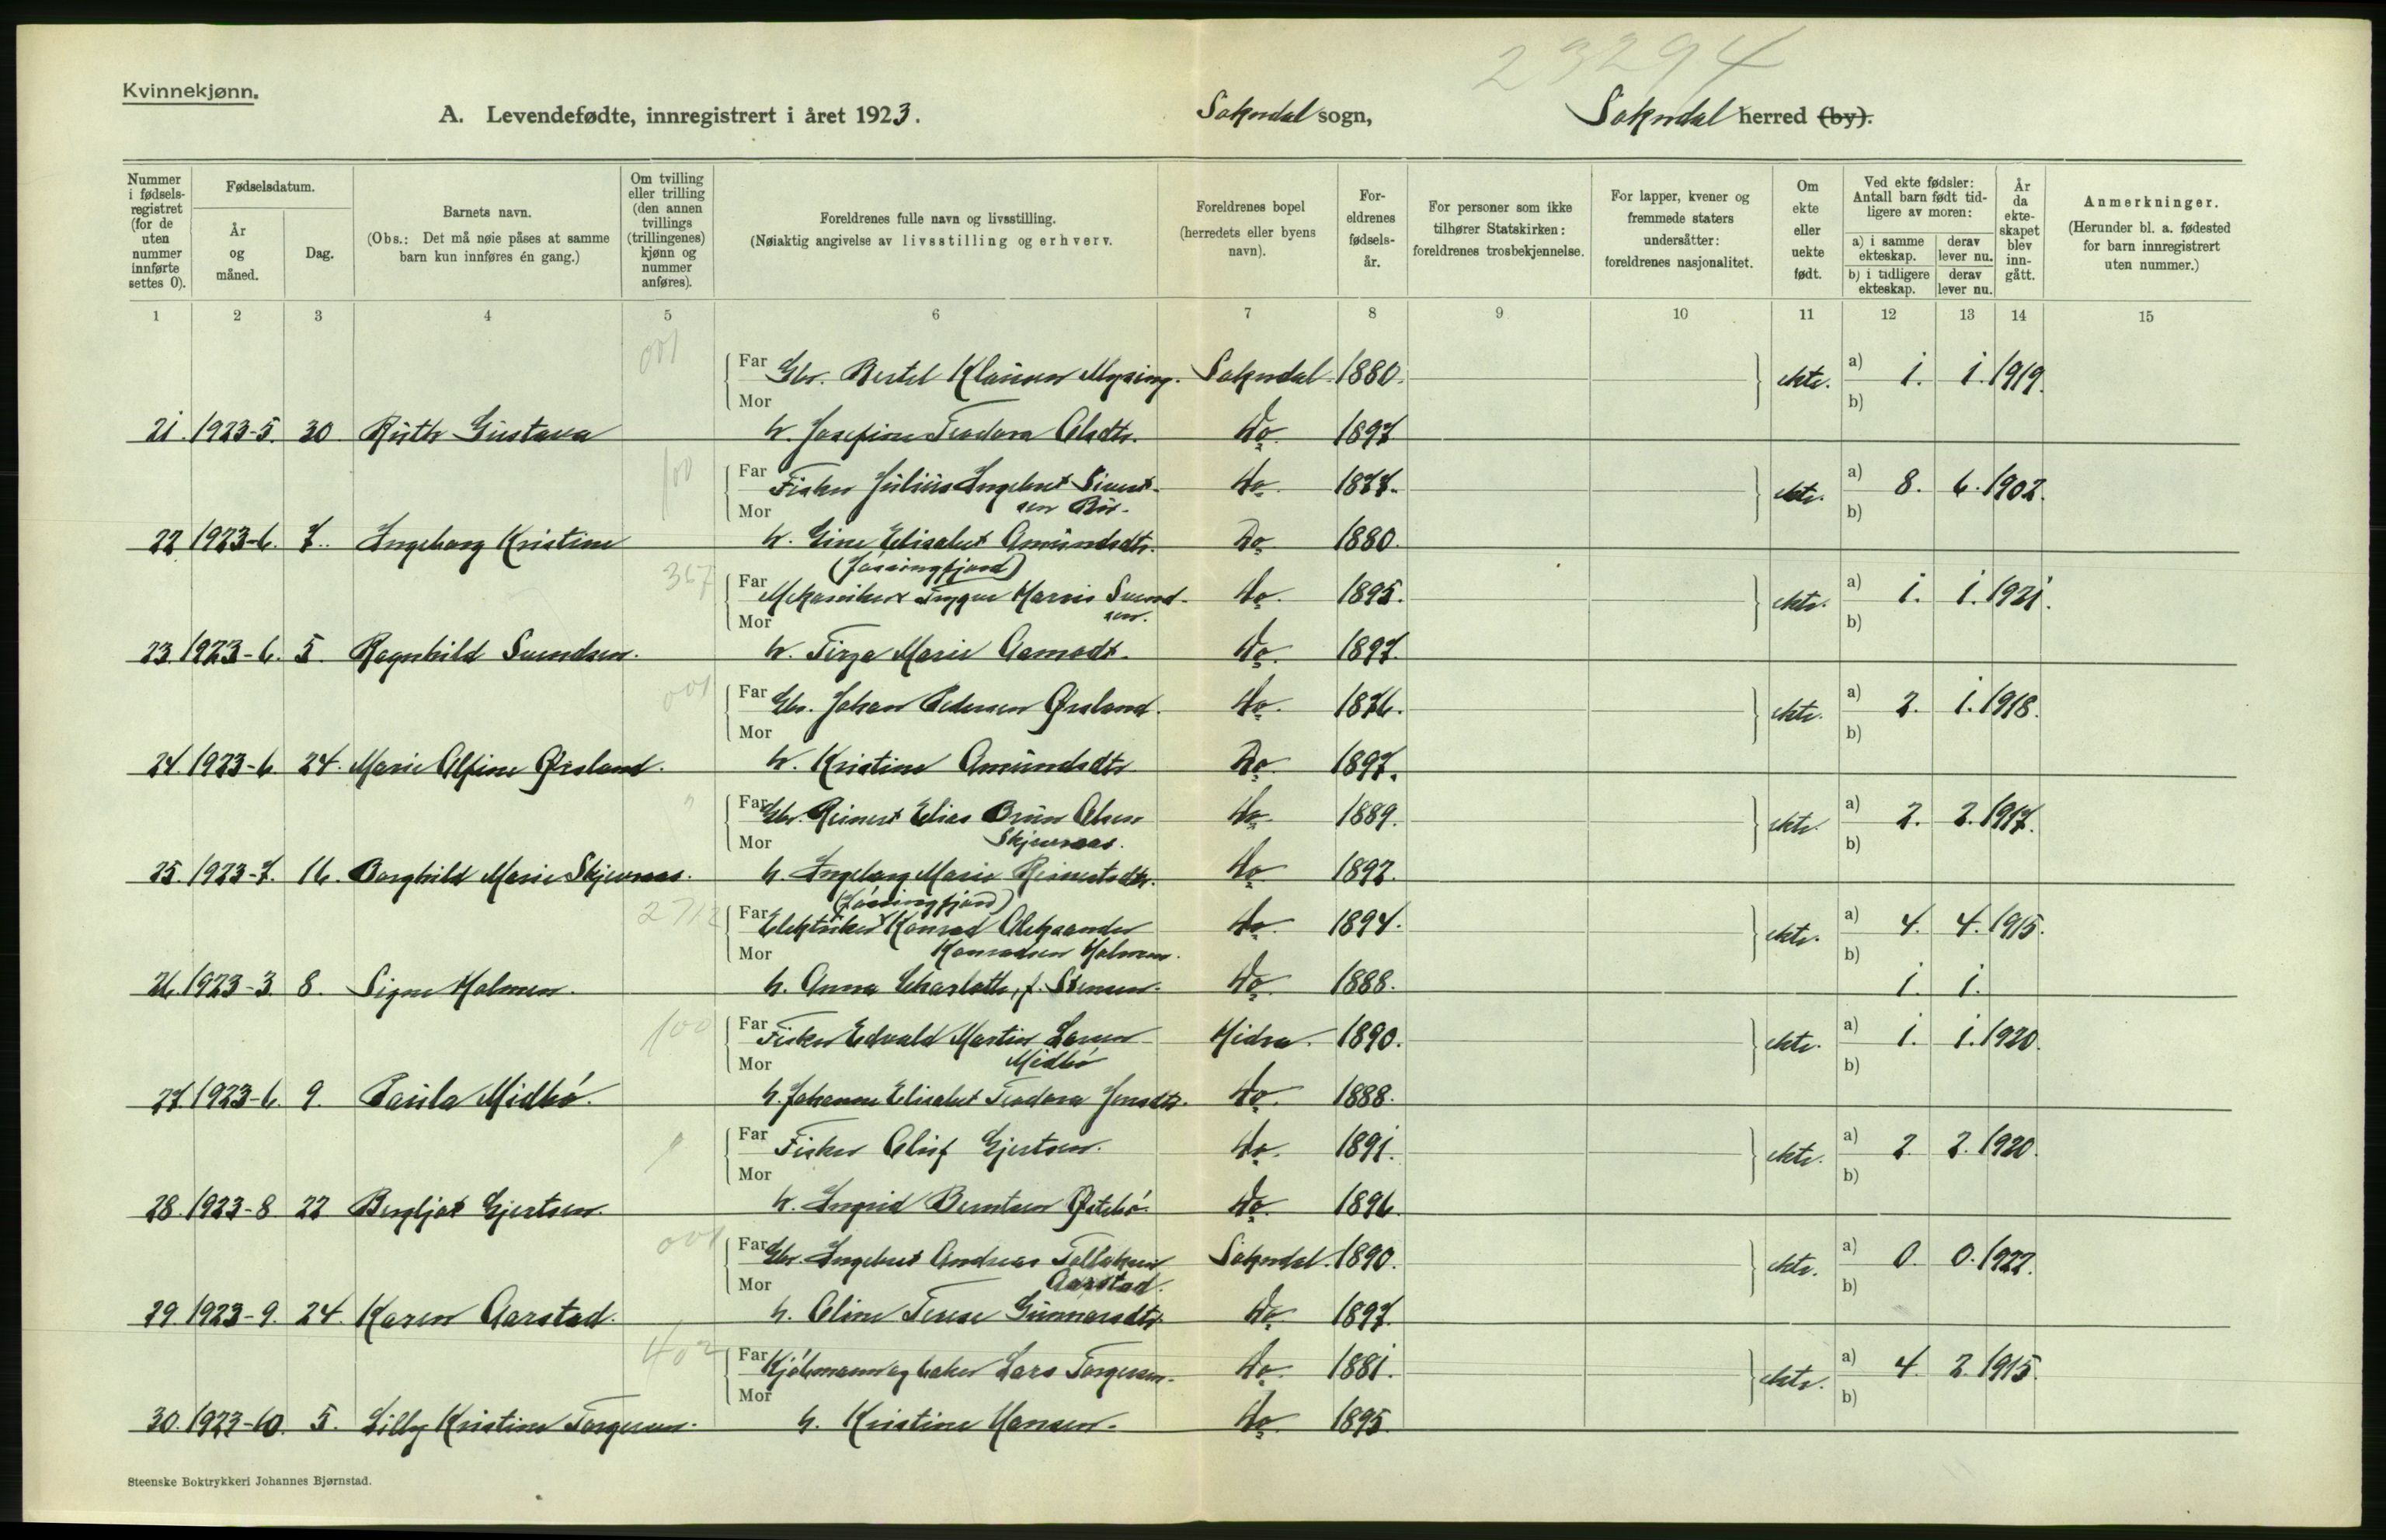 23294
Kvinnekjønn.
A. Levendefødte, innregistrert i året 1923. Sokndal sogn, Sokndal herred (by).
Nummer i fødselsregistret (for de uten nummer innførte settes 0). Fødselsdatum. År og måned. Dag. Barnets navn. (Obs.: Det må nøie påses at samme barn kun innføres én gang.) Om tvilling eller trilling (den annen tvillings (trillingenes) kjønn og nummer anføres). Foreldrenes fulle navn og livsstilling. (Nøiaktig angivelse av livsstilling og erhverv. Foreldrenes bopel (herredets eller byens navn). Foreldrenes fødselsår. For personer som ikke tilhører Statskirken: foreldrenes trosbekjennelse. For lapper, kvener og fremmede staters undersåtter: foreldrenes nasjonalitet. Om ekte eller uekte født. Ved ekte fødsler: Antall barn født tidligere av moren: a) i samme ekteskap. derav lever nu. b) i tidligere ekteskap. derav lever nu. År da ekteskapet blev inngått. Anmerkninger. (Herunder bl. a. fødested for barn innregistrert uten nummer.)
1 2 3 4 5 6 7 8 9 10 11 12 13 14 15
001
Far Gbr. Bertel Klausen Mysing. Sokndal. 1880. ekte. a) 1. 1. 1919.
Mor b)
21. 1923-5. 30 Ruth Gustava h. Josefine Teodora Olsdtr. do. 1897
100
Far Fisker Julius Ingebret Sivert- do. 1877. ekte. a) 8. 6. 1902.
Mor sen b)
22 1923-6. 7. Ingeborg Kristine h. Gine Elisabet Amundsdtr. Do. 1880.
(Jøssingfjord)
367
Far Mekaniker Trygve Marius Svend- do. 1895. ekte. a) 1. 1. 1921.
Mor sen. b)
23. 1923-6. 5. Ragnhild Svendsen. h. Tirza Marie Aamodt. do. 1897.
001
Far Gbr. Johan Pedersen Ørsland. do. 1876. ekte. a) 2. 1. 1918.
Mor b)
24. 1923-6. 24. Marie Alfine Ørsland. h. Kristine Amundsdtr Do. 1897.
"
Far Gbr. Reinert Elias Brun Olsen do. 1889. ekte. a) 2. 2. 1917.
Mor Skjevraas. b)
25. 1923-7. 16. Borghild Marie Skjevraas. h. Ingeborg Marie Reinertsdtr. do 1892.
(Jøssingfjord)
Far Elektriker Konrad Aleksander do. 1894. ekte. a) 4. 4. 1915.
Mor Konradsen Holmen. b)
26. 1923-3. 8. Signe Holmen. h. Anna Charlotte, f. do. 1888. 1. 1.
100
Far Fisker Edvald Martin Larsen Hidra. 1890. ekte. a) 1. 1. 1920.
Mor Midbö b)
27. 1923-6. 9. Paula Midbö. h. Johanne Elisabet Teodora Jensdtr. do. 1888.
"
Far Fisker Oluf Gjertsen. do. 1891. ekte. a) 2. 2. 1920.
Mor b)
28. 1923-8. 22 Bergljot Gjertsen. h. Ingrid Berntsen Østebö. do. 1896.
001
Far Gbr. Ingebret Andreas Tollaksen Sokndal. 1890. ekte. a) 0. 0. 1922.
Mor Aarstad. b)
29. 1923-9. 24. Karen Aarstad. h. Oline Terese Gunnarsdtr. do. 1897.
402
Far Kjöbmann og baker Lars Torgersen. do. 1881. ekte. a) 4. 2. 1915.
Mor b)
30. 1923-10. 5. Lilly Kristine Torgersen. h. Kristine Hansen. do. 1895.
Steenske Boktrykkeri Johannes Bjørnstad.